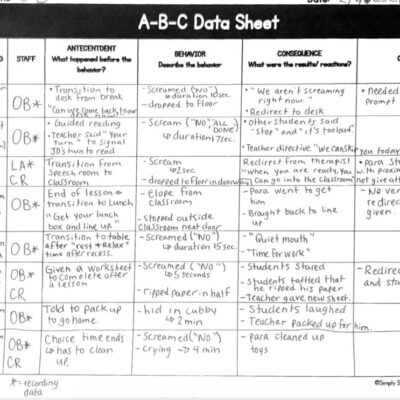 A-B-C Data Sheet
STAFF
ANTECENTDENT
What happened before the behavior?
BEHAVIOR
Describe the behavior
CONSEQUENCE
What were the results/ reactions?
OB*
• Transition to
desk from break
"Can we come back to our
desk now"
- Screamed ("NO")
↳ duration 10sec.
- dropped to floor
• "We aren't screaming
right now."
• Redirect to desk
• needed
prompt
OB*
• Guided reading
• Teacher said "Your
turn" to signal
JD's turn to read
- Scream ("NO" "ALL
DONE!")
↳ duration 7sec.
• Other students said
"stop" and "it's too loud."
• Teacher directive. "We can skip you today"
LA*
CR
Transition from
Speech room to
classroom
- Scream
↳ 2sec
- dropped to floor in doorway
Redirect from therapist
"when you are ready you
can go into the classroom"
• para
with proxim
not give att
OB*
End of lesson →
transition to Lunch
"Get your lunch
box and line up"
- Elope from
classroom
- Stopped outside
classroom next door
- Para went to get
him
- Brought back to line
up
- No ver
redirec
given.
OB*
Transition to table
after "rest + Relax"
time after recess.
- Screamed ("NO")
↳ duration 15 sec.
- "Quiet Mouth"
- "Time for Work"
OB*
CR
Given a worksheet
to complete after
a lesson
- Screamed ("NO")
↳ 5 seconds
- ripped paper in half
- Students stared
- Students tattled that
he ripped his paper
- Teacher gave new sheet.
- Redirec
and sta
OB*
Told to pack up
to go home.
- hid in cubby
↳ 2 min
- Students laughed
- Teacher packed up for him.
OB*
CR
Choice time ends
↳ has to clean
up.
- Screamed ("NO")
- crying → 4 min
- para cleaned up
toys
* = recording
data
©Simply S